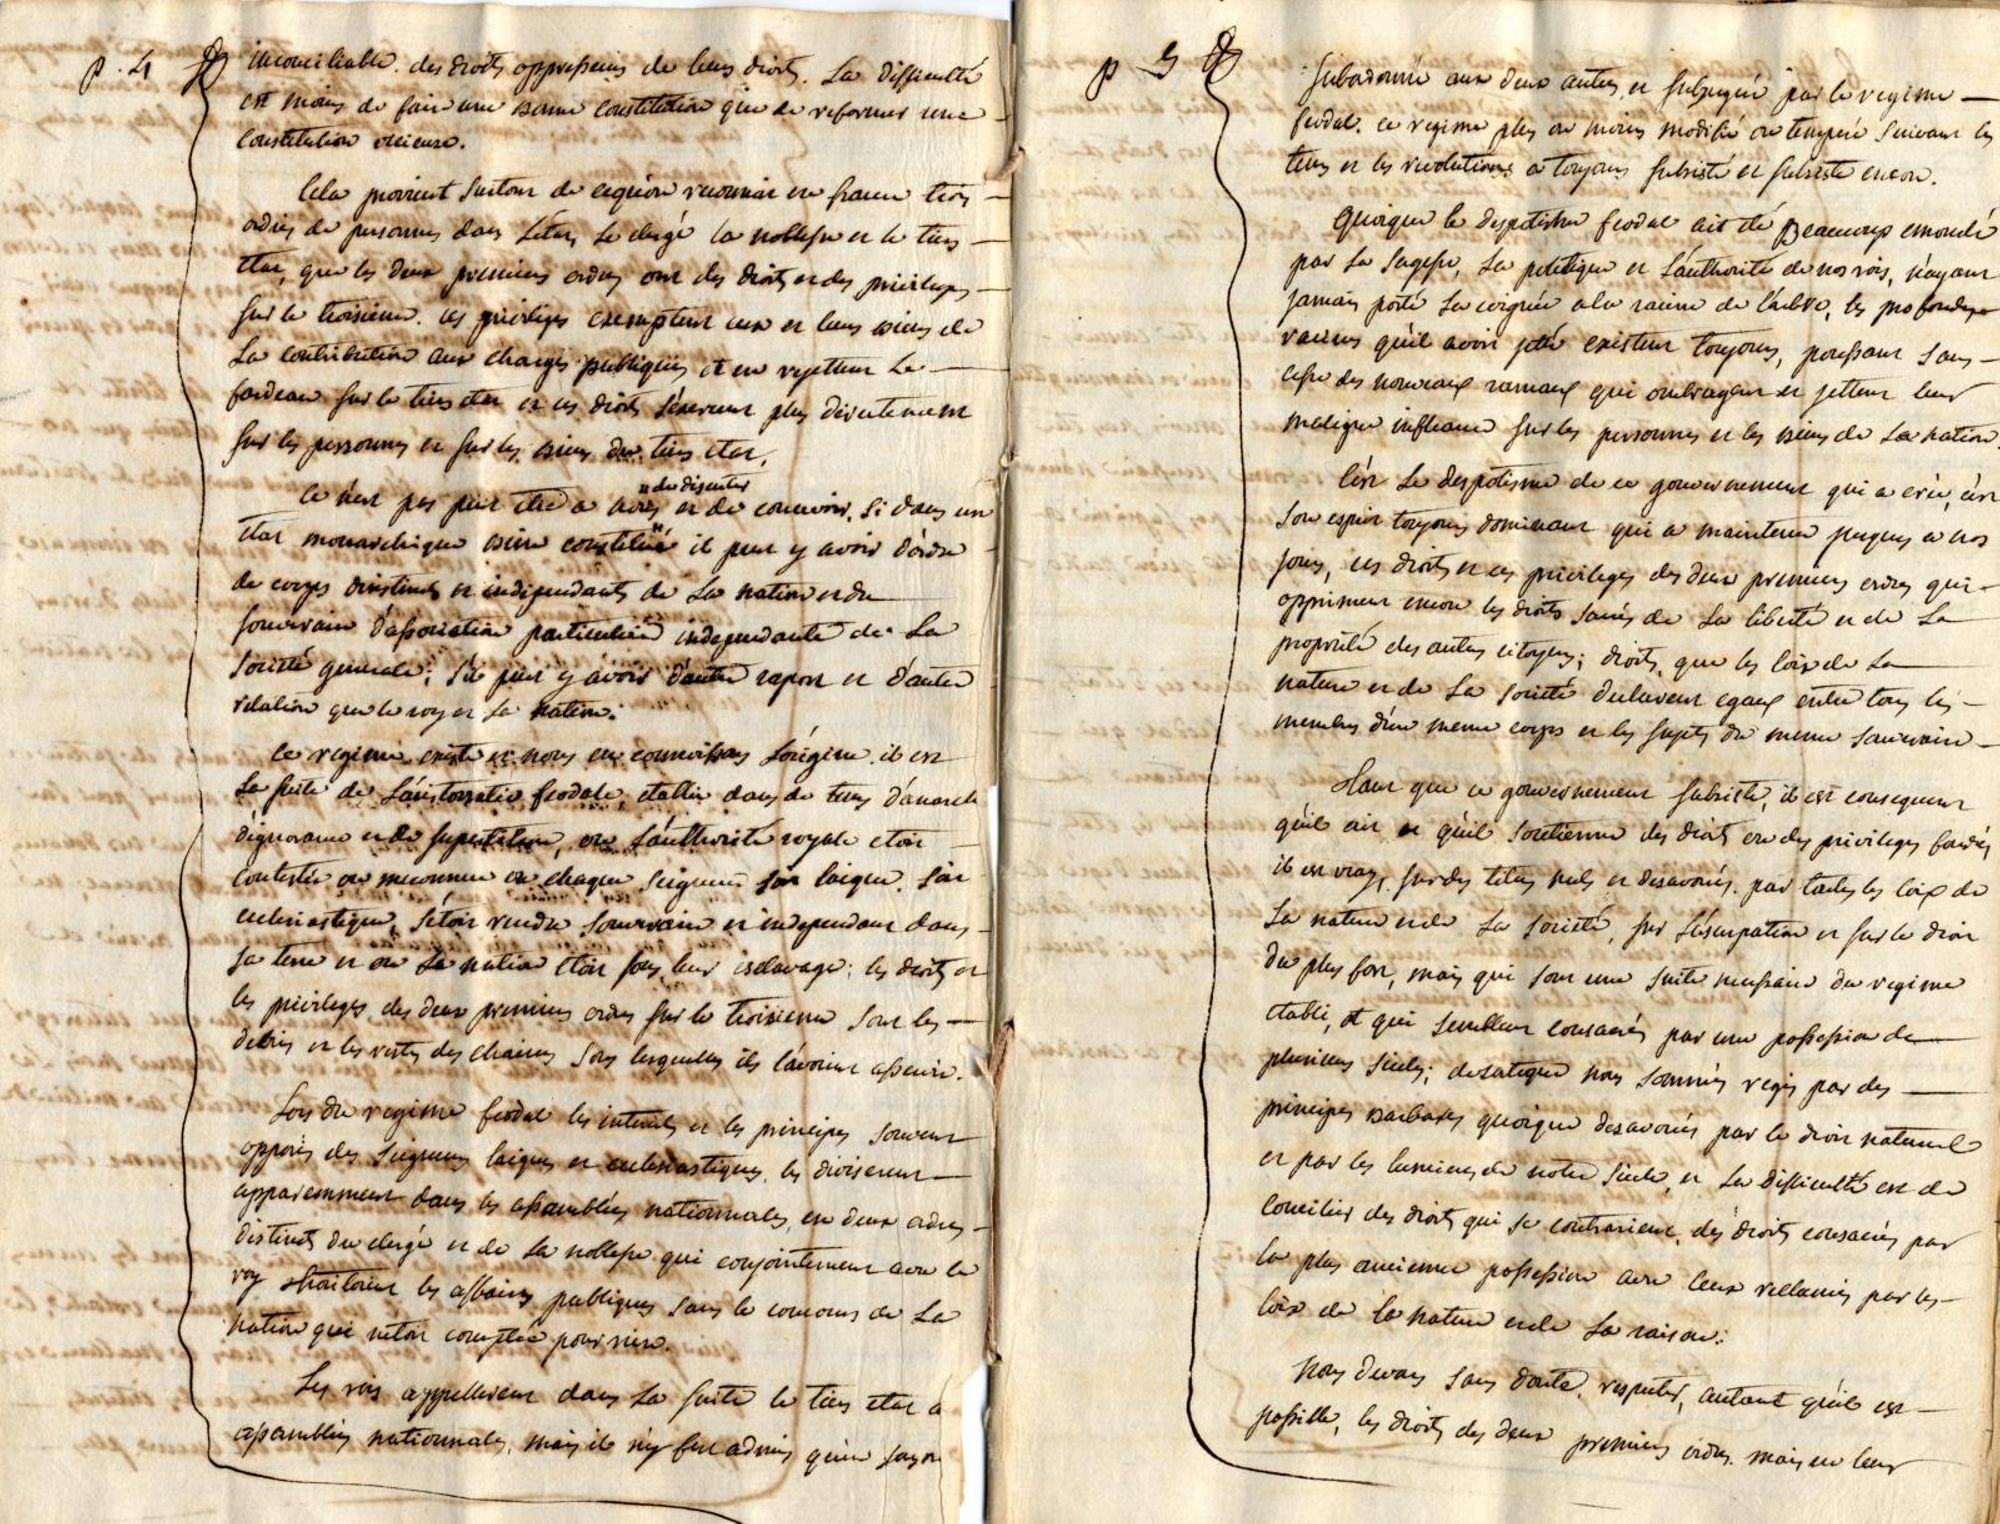 p. 4
inconciliable. des droits oppresseurs de leurs droits. La difficulté
est moins de faire une bonne constitution que de reformer une
constitution vicieuse.
Cela provient surtout de ce qu'on reconnoit en france trois
ordres de personnes dans l'état, le clergé la noblesse et le tiers
état, que les deux premiers ordres ont des droits et des privileges
sur le troisieme. ces privileges exemptent eux et leurs biens de
La contribution aux charges publiques et en rejettent Le
fardeau sur le tiers etat et ces droits s'exercent plus directement
sur les personnes et sur les biens du tiers etat.
"de discuter
Ce n'est pas peut etre a nous et de concevoir, si dans un
état monarchique bien constitué il peut y avoir d'ordre
de corps distincts et independants de La nation et du
souverain d'association particuliere independante de La
societé generale; s'il peut y avoir d'autre raport et d'autre
relation que le roy et La nation.
Ce regime existe et nous en connoissons l'origine. il est
La suite de l'aristocratie feodale, etablie dans de tems d'anarchie
d'ignorance et de superstition, ou l'authorité royale etoit
contestée ou meconnue ou chaque seigneur soit laique, soit
eclesiastique, s'étoit rendu souverain et independant dans
sa terre et ou La nation etoit sous leur esclavage; les droits et
les privileges des deux premiers ordres sur le troisieme sont les
debris et les restes des chaines sous lesquelles ils l'avoient asservie.
Lors du regime feodal les interets et les principes souvent
opposés des seigneurs laiques et eclesiastiques, les diviserent
apparemment dans les assemblées nationnales, en deux ordres
distincts du clergé et de La noblesse qui conjointement avec le
roy traitoient les affaires publiques sans le concours de La
nation qui n'etoit comptée pour rien.
Les rois appellerent dans La suite le tiers etat a
assemblées nationnales, mais il n'y fut admis qu'en façon
p 5
subordonnée aux deux autres, et subjugué par le regime
feodal. ce regime plus ou moins modifié ou temperé suivant les
tems et les revolutions a toujours subsisté et subsiste encore.
Quoique le despotisme feodal ait été Beaucoup emondé
par La sagesse, La politique et L'authorité de nos rois, n'ayant
jamais porté La coignée a la racine de l'arbre, les profondes
racines qu'il avoit jetté existent toujours, poussant sans
cesse des nouveaux rameaux qui ombragent et jettent leur
maligne influence sur les personnes et les biens de La nation.
C'est Le despotisme de ce gouvernement qui a créé, c'est
son esprit toujours dominant qui a maintenu jusques a nos
jours, ces droits et ces privileges des deux premiers ordres qui
oppriment encore les droits sacrés de La liberté et de La
proprieté des autres citoyens; droits, que les loix de La
nature et de La societé declarent egaux entre tous les
membres d'un meme corps et les sujets du meme souverain
Tant que ce gouvernement subsiste, il est consequent
qu'il ait et qu'il soutienne des droits ou des privileges fondés
il est vray, sur des titres nuls et desavoués. par toutes les loix de
La nature et de La societé, sur L'usurpation et sur le droit
du plus fort, mais qui sont une suite necessaire du regime
etabli, et qui semblent consacrés par une possession de
plusieurs siecles; nous sommes regis par des
principes barbares quoique desavoués par le droit naturel
et par les lumieres de notre siecle, et La difficulté est de
concilier des droits qui se contrarient, des droits consacrés par
la plus ancienne possession avec ceux reclamés par les
loix de la nature et de La raison.
Nous devons sans doute, respecter, autant qu'il est
possible, les droits des deux premiers ordres. mais en leur